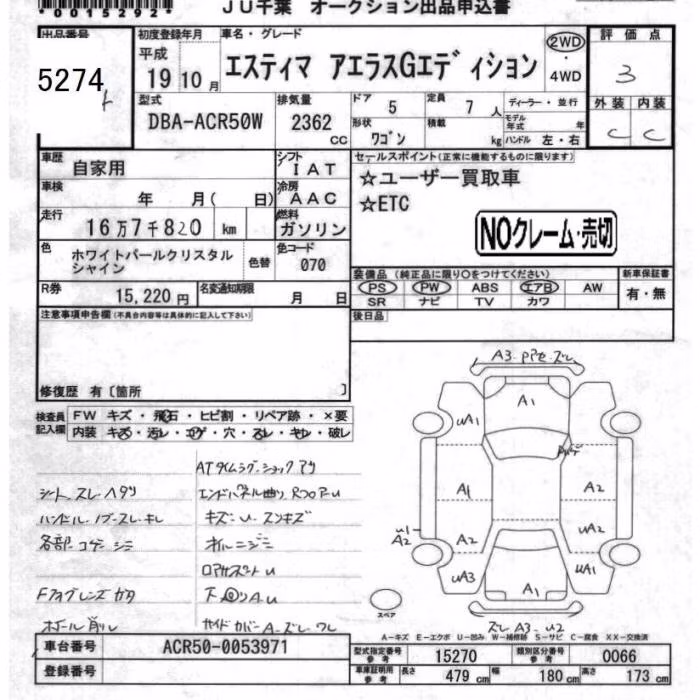 *0015292*
JU千葉 オークション出品申込書
出品番号
5274
初度登録年月
平成
19 10月
車名・グレード
エスティマ アエラスGエディション
2WD
・
4WD
評価点
3
型式
DBA-ACR50W
排気量
2362
CC
ドア 5
定員 7 人
ディーラー・並行
形状 ワゴン
積載 kg
モデル年式 年
ハンドル 左・右
外装 内装
C C
車歴
自家用
シフト
IAT
セールスポイント(正常に機能するものに限ります)
☆ユーザー買取車
☆ETC
NOクレーム・売切
車検
年 月( 日)
冷房
AAC
走行
16万7千820 km
燃料
ガソリン
色
ホワイトパールクリスタル
シャイン
色替
色コード
070
装備品(純正品に限り〇をつけてください)
PS PW ABS エアB AW
SR ナビ TV カワ
新車保証書
有・無
R券
15,220円
名変通知期限
月 日
後日品
注意事項申告欄(不具合内容等は具体的に記入して下さい)
修復歴 有〔箇所 〕
検査員
記入欄
FW キズ・飛石・ヒビ割・リペア跡・×要
内装 キズ・汚レ・コゲ・穴・スレ・キレ・破レ
ATタイムラグ.ショックアリ
シート スレ ヘタリ
ハンドル.ノブ-スレ.キレ
キズ-U-スンキズ
各部 コゲ シミ
Fフォグレンズ ガタ
ホイール 削レ
A3.
A1
uA1
A1
A2
A2
uA2
u1
A2
uA3
uA1
A1
スペア
スレ A3-u2
A-キズ E-エクボ U-凹み W-補修跡 S-サビ C-腐食 XX-交換済
車台番号
ACR50-0053971
登録番号
型式指定番号
参考
15270
類別区分番号
参考
0066
車庫証明用
参考
長さ 479 cm
幅 180 cm
高さ 173 cm